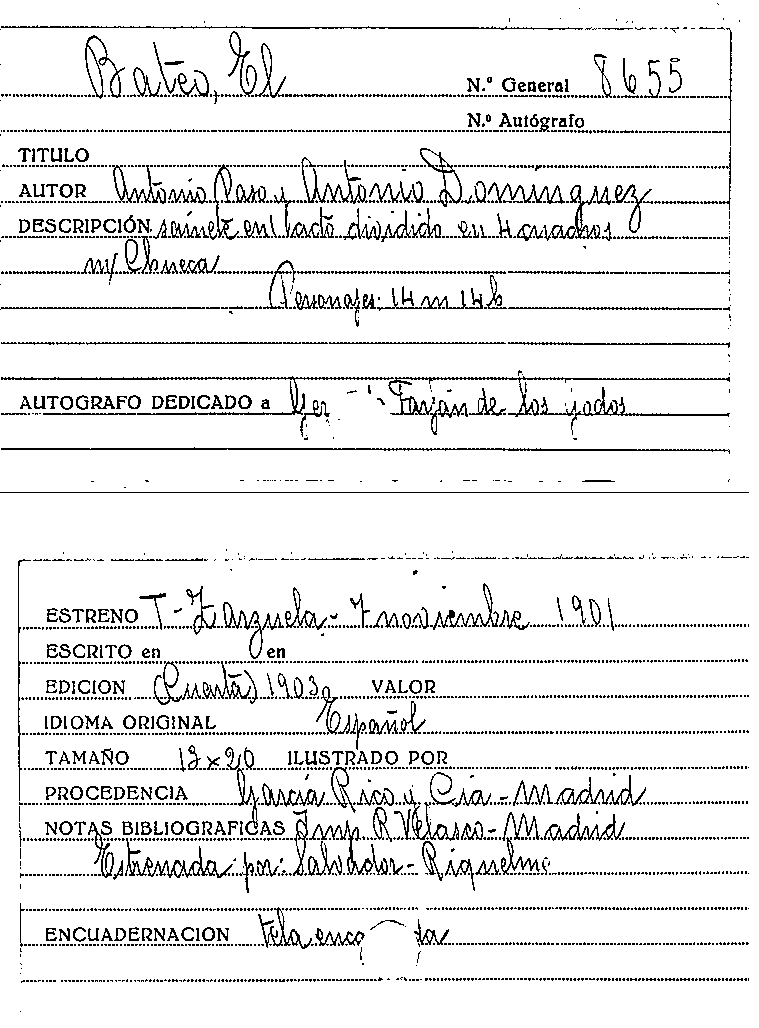 Bateo, El
N.º General 8655
N.º Autógrafo
TITULO
AUTOR Antonio Paso y Antonio Dominguez
DESCRIPCIÓN sainete en 1 acto dividido en 4 cuadros
m/ Chueca
Personajes: 14 m 14 h
AUTOGRAFO DEDICADO a de los
ESTRENO T-Zarzuela-7 noviembre 1901
ESCRITO en en
EDICION (Cuarta) 1903 VALOR
IDIOMA ORIGINAL Español
TAMAÑO 13x20 ILUSTRADO POR
PROCEDENCIA Garcia Rico y Cia-Madrid
NOTAS BIBLIOGRAFICAS Imp. R Velasco-Madrid
Estrenada por: Salvador-Riquelme
ENCUADERNACION tela